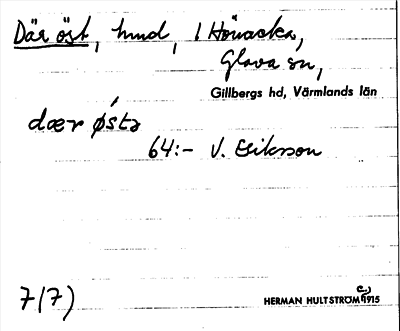 Där öst, hmd, 1 Hönacka,
Glava sn,
Gillbergs hd, Värmlands län
dær ǿsta
64:- V. Eriksson
7(7)
HERMAN HULTSTRÖM 1915